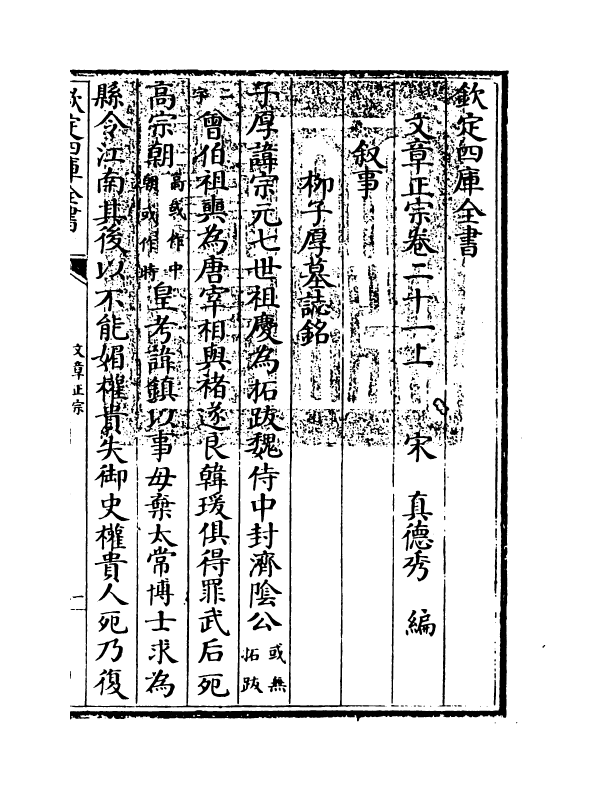 欽定四庫全書
文章正宗卷二十一上 宋 真德秀 編
叙事
柳子厚墓誌銘
子厚諱宗元七世祖慶為拓跋魏侍中封濟隂公或無拓跋
二字曾伯祖奭為唐宰相與禇遂良韓瑗俱得罪武后死
高宗朝高或作中朝或作時皇考諱鎮以事母棄太常博士求為
縣令江南其後以不能媚權貴失御史權貴人死乃復
欽定四庫全書
文章正宗